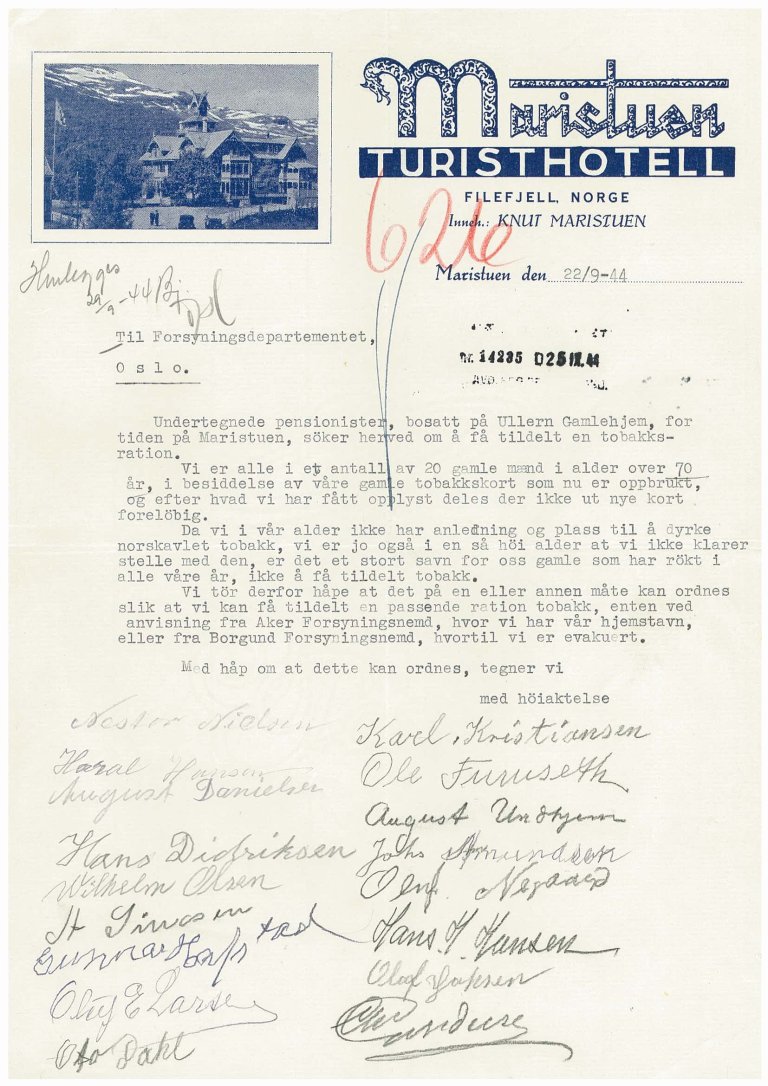 Maristuen
TURISTHOTELL
FILEFJELL, NORGE
Inneh.: KNUT MARISTUEN
626
Maristuen den 22/9-44
Henlegges
29/9-44
Til Forsyningsdepartementet,
Oslo.
Nr. 14235 D 25 IX. 44
Undertegnede pensionister, bosatt på Ullern Gamlehjem, for
tiden på Maristuen, söker herved om å få tildelt en tobakks-
ration.
Vi er alle i et antall av 20 gamle mænd i alder over 70
år, i besiddelse av våre gamle tobakkskort som nu er oppbrukt,
og efter hvad vi har fått opplyst deles der ikke ut nye kort
forelöbig.
Da vi i vår alder ikke har anledning og plass til å dyrke
norskavlet tobakk, vi er jo også i en så höi alder at vi ikke klarer
stelle med den, er det et stort savn for oss gamle som har rökt i
alle våre år, ikke å få tildelt tobakk.
Vi tör derfor håpe at det på en eller annen måte kan ordnes
slik at vi kan få tildelt en passende ration tobakk, enten ved
anvisning fra Aker Forsyningsnemd, hvor vi har vår hjemstavn,
eller fra Borgund Forsyningsnemd, hvortil vi er evakuert.
Med håp om at dette kan ordnes, tegner vi
med höiaktelse
Nestor Nielsen
Karl. Kristiansen
Haral Hansen
Ole Furuseth
August Danielsen
August Undhjem
Hans Didriksen
Johs Amundsen
Wilhelm Olsen
Oluf
H
Hans H. Hansen
Gunnar
Olaf
Oluf E Larsen
Otto Dahl